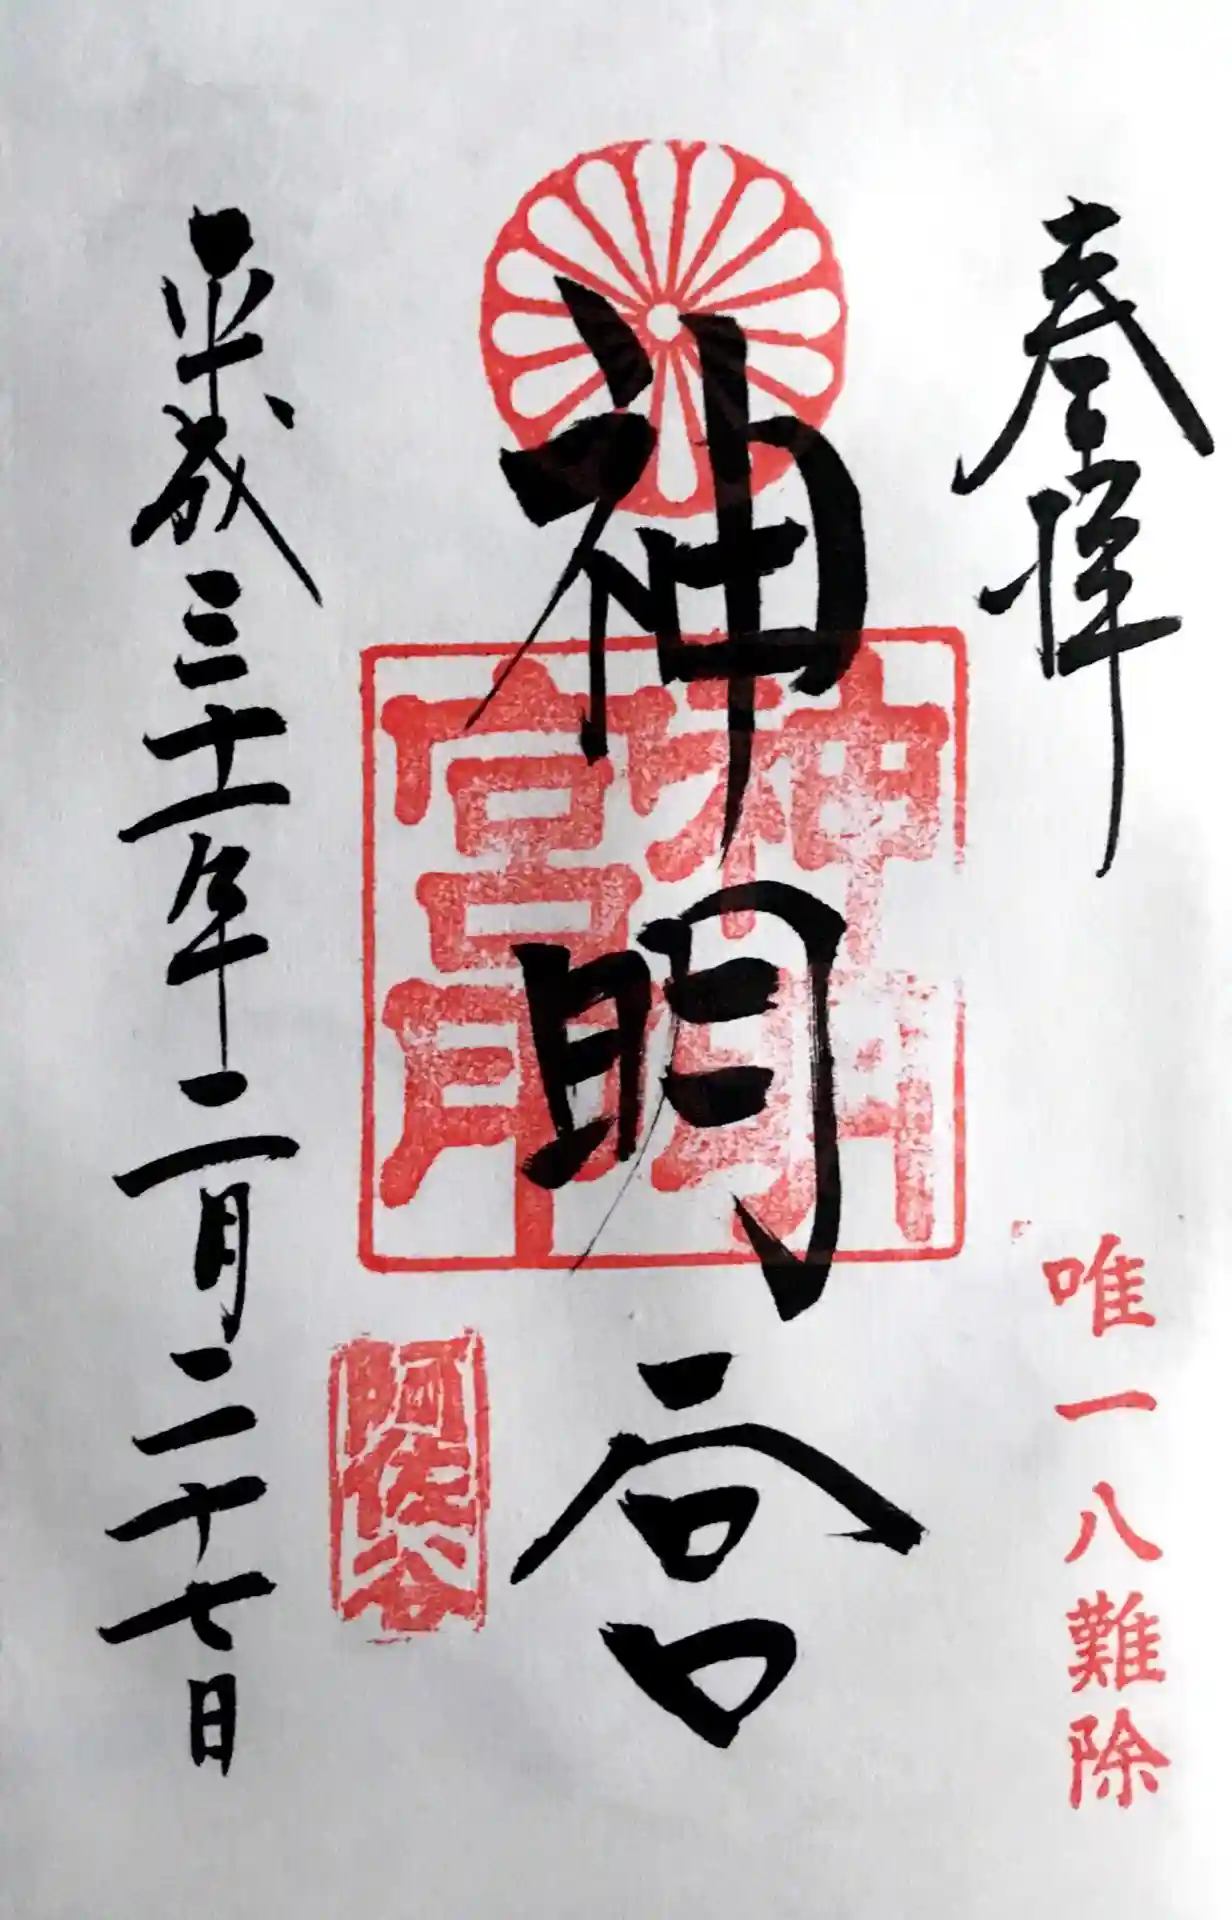 奉拝
唯一八難除
神明宮
神明宮印
阿佐谷
平成三十一年二月二十七日